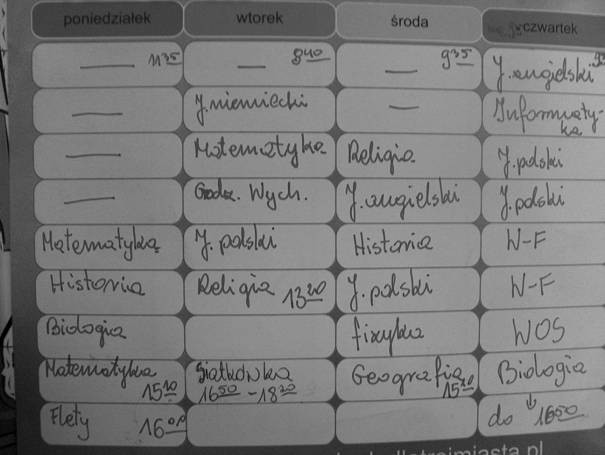 poniedziałek wtorek środa czwartek
— 11³⁵ — 8⁴⁰ — 9³⁵ J. angielski
— J. niemiecki — Informaty-
ka
— Matematyka Religia J. polski
— Godz. Wych. J. angielski J. polski
Matematyka J. polski Historia W-F
Historia Religia 13²⁰ J. polski W-F
Biologia fizyka WOS
Matematyka Siatkówka Geografia Biologia
15¹⁰ 16⁵⁰ - 18²⁰ 15¹⁰
Flety 16⁰⁰ do 16⁵⁰